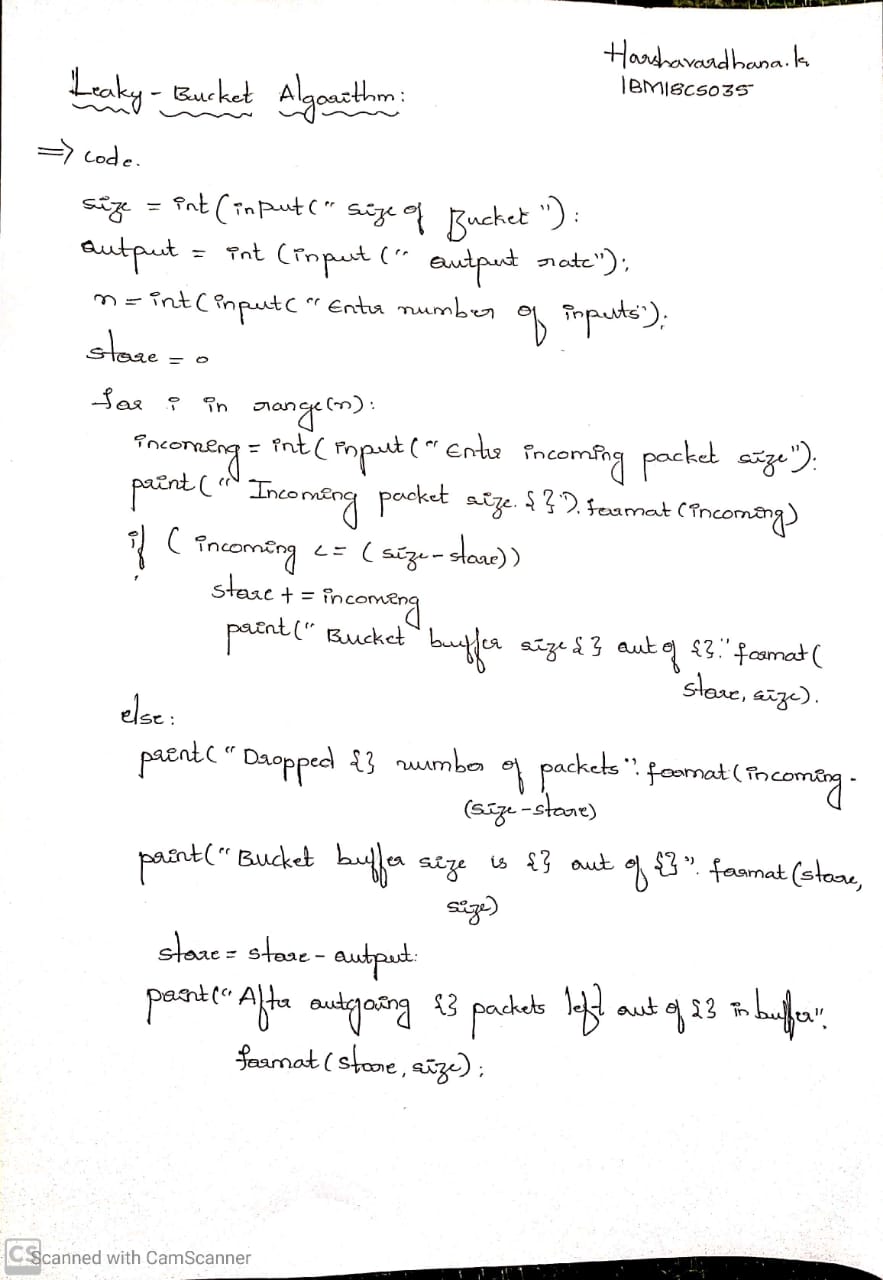 Harshavardhana.k
1BM18CS035
Leaky - Bucket Algorithm:
⇒ code.
size = int (input (" size of Bucket ") :
output = int (input (" output rate");
n = int (input (" Enter number of inputs");
store = 0
for i in range(n):
incoming = int ( input (" Enter incoming packet size"):
print (" Incoming packet size. {}"). format (incoming)
if ( incoming <= ( size - store))
store + = incoming
print (" Bucket buffer size {} out of {}." format (
store, size).
else:
print (" Dropped {} number of packets". format (incoming -
(size - store)
print (" Bucket buffer size is {} out of {}". format (store,
size)
store = store - output:
print (" After outgoing {} packets left out of {} in buffer".
format ( store, size) ;
CS Scanned with CamScanner